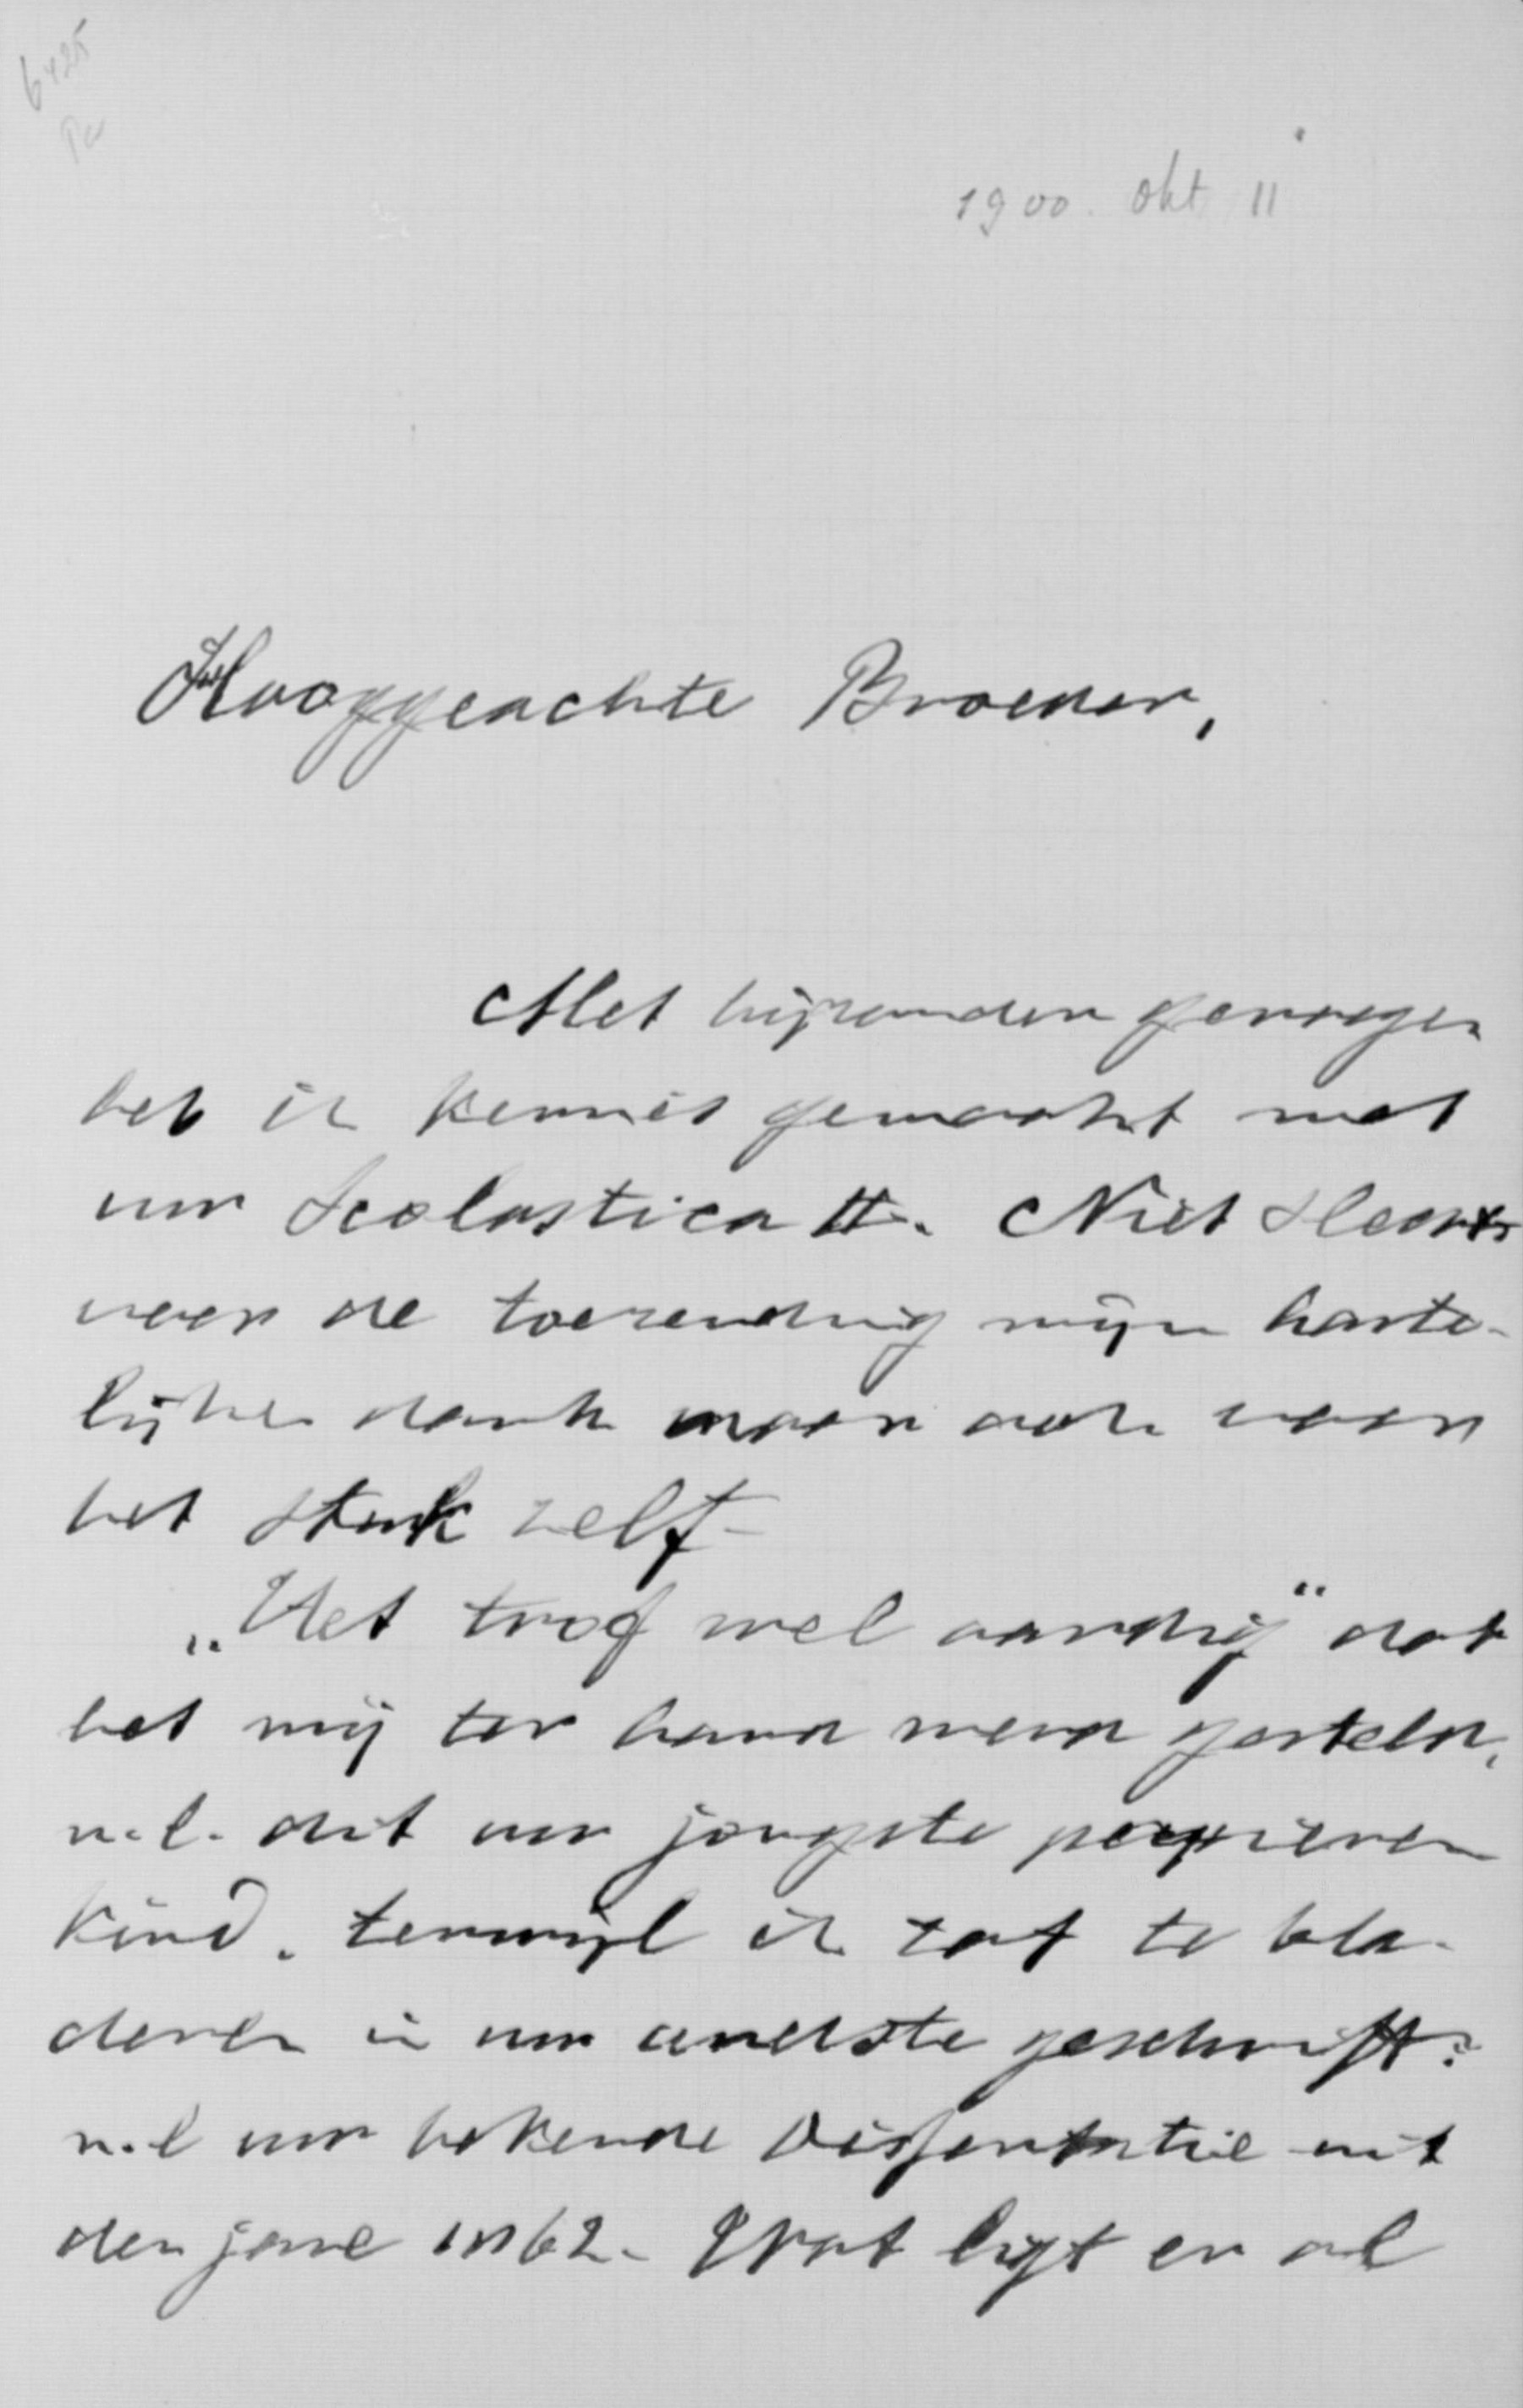 6425
1900. Okt 11
Hooggeachte Broeder,
Met bijzonder genoegen
heb ik kennis gemaakt met
uw Scolastica II. Niet slechts
voor de toezending mijn harte-
lijken dank maar ook voor
het stuk zelf -
„Het trof wel aardig" dat
het mij ter hand werd gesteld,
n.l. dit uw jongste papieren
kind, terwijl ik zat te bla-
deren in uw oudste geschrift:
n.l uw bekende Dissertatie uit
den jare 1862. Wat ligt er al